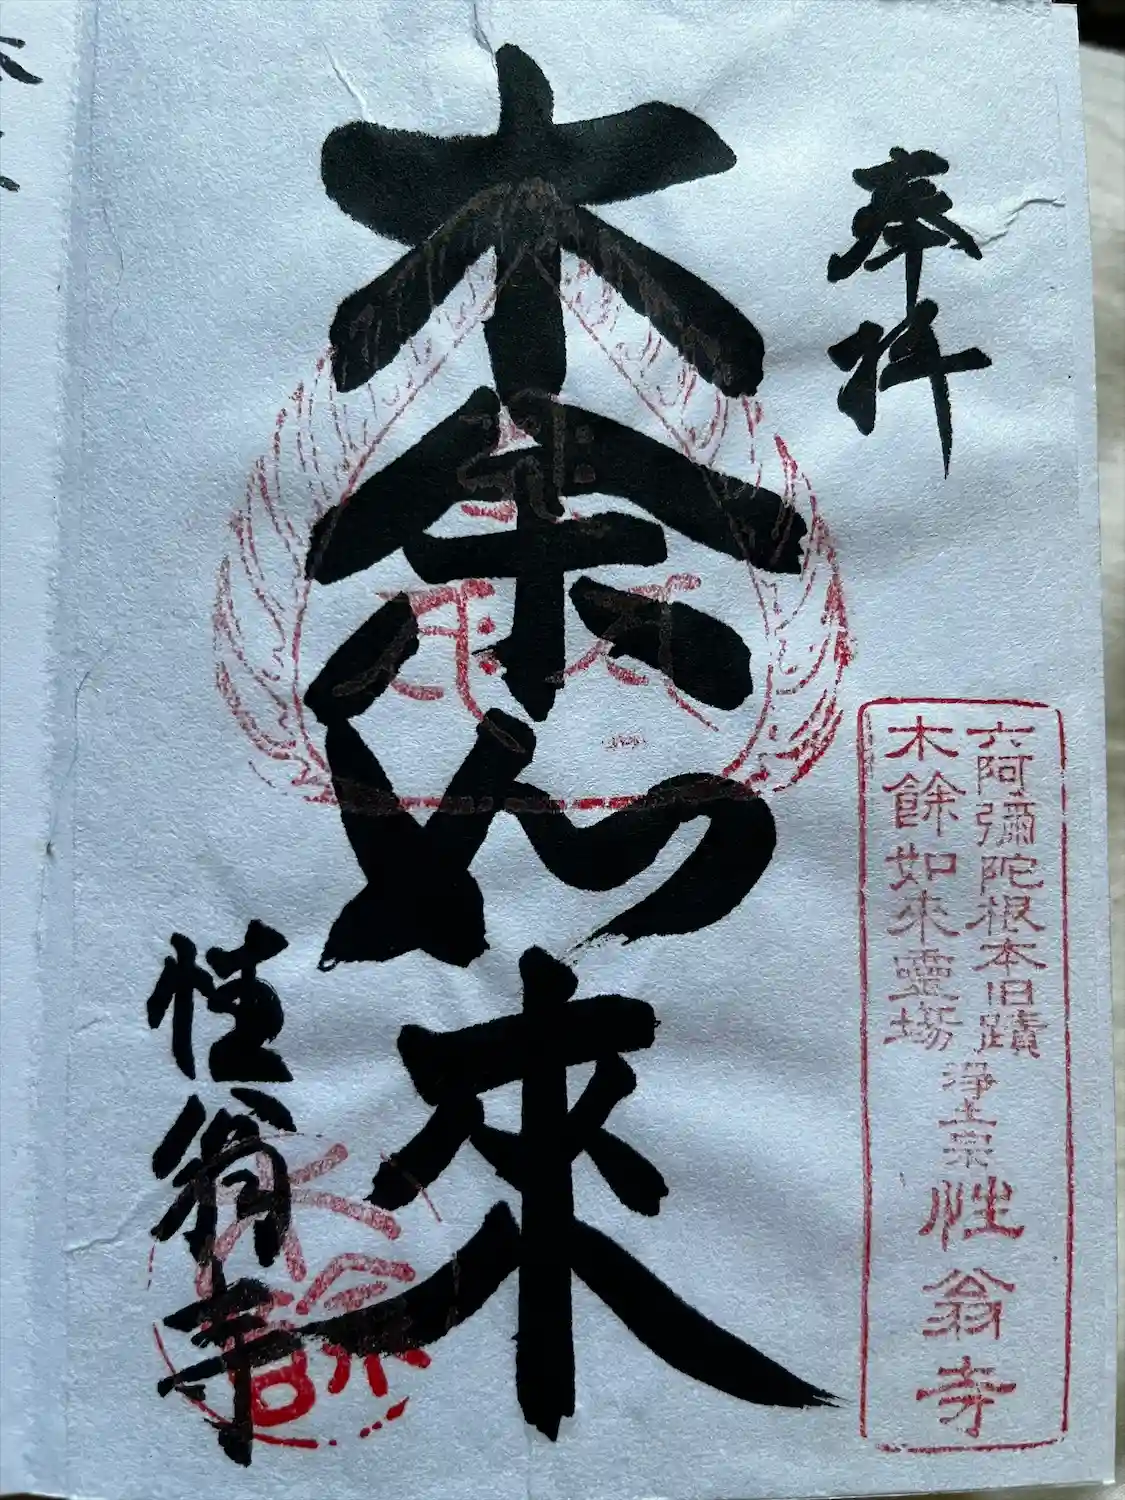 奉拝
六阿彌陀根本旧蹟
木餘如來靈場
浄土宗
性翁寺
木余如來
性翁寺